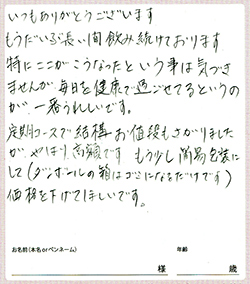 いつもありがとうございます
もうだいぶ長い間飲み続けております
特にここがこうなったという事は気づき
ませんが、毎日を健康で過ごせてるというの
が一番うれしいです。
定期コースで結構お値段もさがりました
が やはり高額です もう少し簡易包装に
して(ダンボールの箱はゴミになるだけです)
価格を下げてほしいです。
お名前(本名orペンネーム) 年齢
様 歳